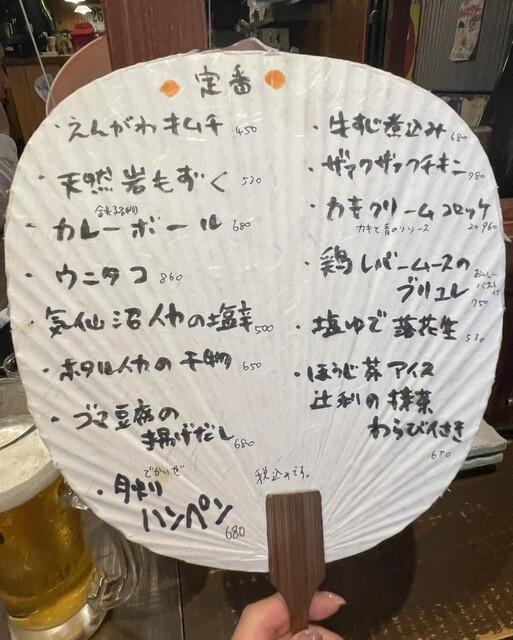 定番
・えんがわキムチ 450
・天然岩もずく 530
・カレーボール 680
・ウニタコ 860
・気仙沼イカの塩辛 500
・ホタルイカの干物 650
・ゴマ豆腐の
揚げだし 680
でかいぜ
ハンペン 680
・牛すじ煮込み 680
・ザックザックチキン 780
・カキクリームコロッケ
カキと青のりソース 2ヶ960
・鶏レバームースの
ブリュレ 750
おいしい
・塩ゆで落花生 530
・ほうじ茶アイス
辻利の抹茶
わらび 650
税込みです。